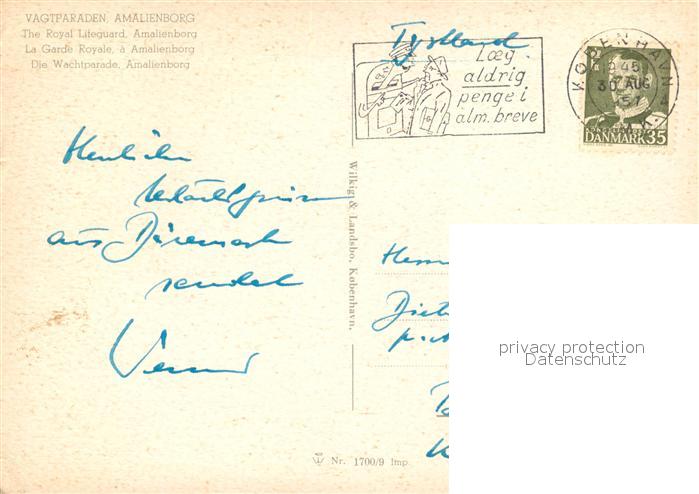 VAGTPARADEN, AMALIENBORG
The Royal Lifeguard, Amalienborg
La Garde Royale, à Amalienborg
Die Wachtparade, Amalienborg
Tyskland
Læg
aldrig
penge i
alm. breve
KØBENHAVN
30 AUG
57
DANMARK 35
Herzlichen
aus Dänemark
sendet
Werner
Wilkigt & Landsbo, København.
Herrn
Nr. 1700/9 Imp.
privacy protection
Datenschutz